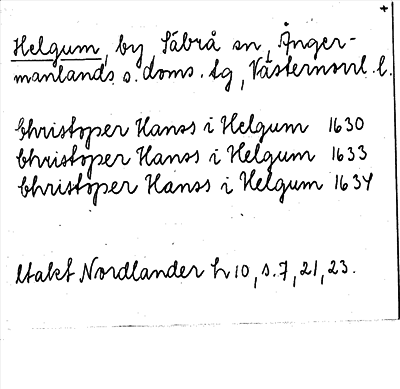 +
Helgum, by Säbrå sn, Ånger-
manlands s. doms. tg, Västernorrl. l.
Christoper Hanss i Helgum 1630
Christoper Hanss i Helgum 1633
Christoper Hanss i Helgum 1634
Utakt Nordlander h 10, s. 7, 21, 23.